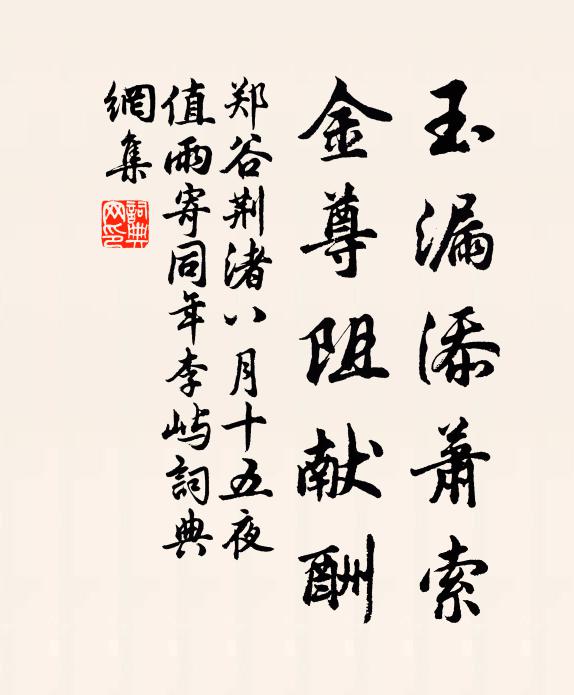 玉漏添萧索
金尊阻献酬
郑谷荆渚八月十五夜
值雨寄同年李屿詞典
網集
詞典
网印